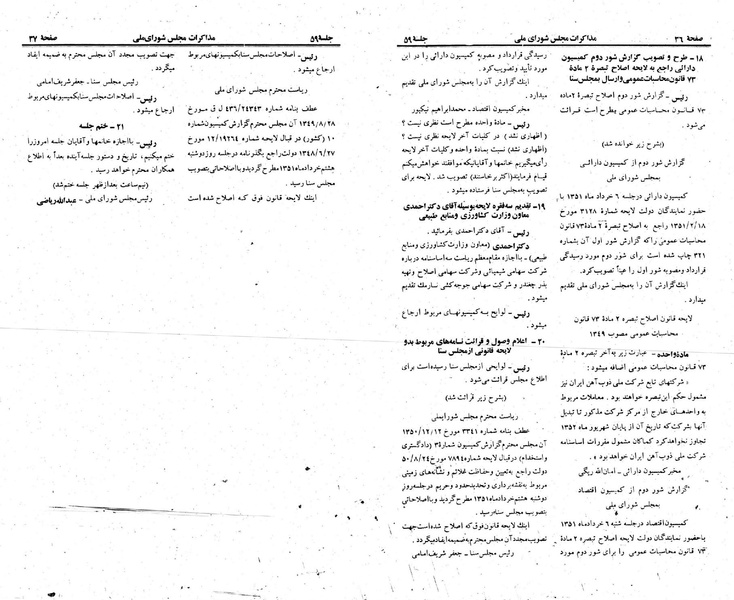 صفحهٔ ۳۶ مذاکرات مجلس شورای ملی جلسهٔ ۵۹
۱۸- طرح و تصویب گزارش شور دوم کمیسیون
دارائی راجع به لایحه اصلاح تبصرهٔ ۲ مادهٔ
۷۳ قانون محاسبات عمومی وارسال بمجلس سنا
رئیس - گزارش شور دوم اصلاح تبصرهٔ ۲ ماده
۷۳ قانون محاسبات عمومی مطرح است قرائت
می‌شود.
(بشرح زیر خوانده شد)
گزارش شور دوم از کمیسیون دارائی
بمجلس شورای ملی
کمیسیون دارائی در جلسه ۶ خرداد ماه ۱۳۵۱ با
حضور نمایندگان دولت لایحه شمارهٔ ۳۱۲۸ مورخ
۱۳۵۱/۲/۱۸ راجع به اصلاح تبصرهٔ ۲ مادهٔ ۷۳ قانون
محاسبات عمومی راکه گزارش شور اول آن بشماره
۳۲۱ چاپ شده است برای شور دوم مورد رسیدگی
قرارداد و مصوبه شور اول را عیناً تصویب کرد.
اینک گزارش آن را به‌مجلس شورای ملی تقدیم
میدارد.
لایحه قانون اصلاح تبصره ۲ مادهٔ ۷۳ قانون
محاسبات عمومی مصوب ۱۳۴۹
مادهٔ واحده - عبارت زیر به‌آخر تبصره ۲ مادهٔ
۷۳ قانون محاسبات عمومی اضافه میشود:
« شرکتهای تابع شرکت ملی ذوب‌آهن ایران نیز
مشمول حکم این‌تبصره خواهند بود. معاملات مربوط
به واحدهای خارج از مرکز شرکت مذکور تا تبدیل
آنها بشرکت‌که تاریخ آن از پایان شهریور ماه ۱۳۵۲
تجاوز نخواهدکرد کماکان مشمول مقررات اساسنامه
شرکت ملی ذوب‌آهن ایران خواهد بود».
مخبرکمیسیون دارائی - امان‌الله ریگی
گزارش شور دوم از کمیسیون اقتصاد
بمجلس شورای ملی
کمیسیون‌اقتصاد درجلسه شنبه ۶ خردادماه ۱۳۵۱
باحضور نمایندگان دولت لایحه اصلاح تبصره ۲ مادهٔ
۷۳ قانون محاسبات عمومی را برای شور دوم مورد
رسیدگی قرارداد و مصوبه کمیسیون دارائی را در این
مورد تأیید وتصویب کرد.
اینک گزارش آن را به‌مجلس شورای ملی تقدیم
میدارد.
مخبرکمیسیون اقتصاد - محمدابراهیم نیکپور
رئیس - مادهٔ واحده مطرح است نظری نیست؟
(اظهاری نشد) در کلیات آخر لایحه نظری نیست؟
(اظهاری نشد) نسبت بمادهٔ واحده و کلیات آخر لایحه
رأی میگیریم خانمها وآقایانیکه موافقند خواهش میکنم
قیام فرمایند(اکثر برخاستند) تصویب شد. لایحه برای
تصویب به‌مجلس سنا فرستاده میشود.
۱۹- تقدیم سه‌فقره لایحه‌بوسیلهٔ آقای دکتراحمدی
معاون وزارت کشاورزی ومنابع طبیعی
رئیس - آقای دکتراحمدی بفرمائید.
دکتراحمدی (معاون وزارت‌کشاورزی ومنابع
طبیعی) - با اجازه مقام‌معظم ریاست سه‌اساسنامه درباره
شرکت سهامی شیمیائی وشرکت سهامی اصلاح وتهیه
بذر چغندر و شرکت سهامی جوجه‌کشی سارمک تقدیم
میشود.
رئیس - لوایح به‌کمیسیونهای مربوط ارجاع
میشود.
۲۰- اعلام وصول و قرائت نامه‌های مربوط بدو
لایحه قانونی ازمجلس سنا
رئیس - لوایحی ازمجلس سنا رسیده‌است برای
اطلاع مجلس قرائت می‌شود.
(بشرح زیر قرائت شد)
ریاست محترم مجلس شورایملی
عطف بنامه شماره ۳۳۴۱ مورخ ۱۳۵۰/۱۲/۱۲
آن مجلس محترم‌گزارش‌کمیسیون شماره ۳(دادگستری
واستخدام) درقبال لایحه شماره ۷۸۹۴ مورخ ۵۰/۸/۲۴
دولت راجع به‌تعیین وحفاظت علائم و نشانه‌های زمینی
مربوط به‌نقشه‌برداری وتحدیدحدود وحریم درجلسه‌روز
دوشنبه هشتم‌خردادماه ۱۳۵۱ مطرح گردید وبااصلاحاتی
بتصویب مجلس سنارسید.
اینک لایحه قانون‌فوق‌که اصلاح شده‌است‌جهت
تصویب‌مجدد آن‌مجلس محترم‌به‌ضمیمه‌ایفادمیگردد.
رئیس مجلس‌سنا - جعفر شریف‌امامی
جلسهٔ ۵۹ مذاکرات مجلس شورای ملی صفحهٔ ۳۷
رئیس - اصلاحات مجلس سنابکمیسیونهای‌مربوط
ارجاع میشود.
ریاست محترم مجلس شورای ملی
عطف بنامه شماره ۴۳۶/۲۴۳۴۳ ل ق مورخ
۱۳۴۹/۸/۲۸ آن مجلس محترم‌گزارش‌کمیسیون‌شماره
۱۰ (کشور) در قبال لایحه شماره ۱۲/۱۹۲۶۴ مورخ
۱۳۴۸/۲/۲۷ دولت‌راجع بگذرنامه درجلسه روزدوشنبه
هشتم‌خردادماه ۱۳۵۱مطرح‌گردیدو بااصلاحاتی‌بتصویب
مجلس سنا رسید.
اینک لایحه قانون فوق که اصلاح شده است
جهت تصویب مجدد آن مجلس محترم به ضمیمه ایفاد
میگردد.
رئیس مجلس سنا - جعفر شریف‌امامی
رئیس - اصلاحات مجلس سنابکمیسیونهای‌مربوط
ارجاع میشود.
۲۱ - ختم جلسه
رئیس - بااجازه خانمها وآقایان جلسه امروزرا
ختم میکنیم، تاریخ و دستور جلسه‌آینده بعداً به اطلاع
همکاران محترم خواهد رسید.
(نیم‌ساعت بعدازظهر جلسه ختم‌شد)
رئیس مجلس شورای ملی - عبدالله ریاضی